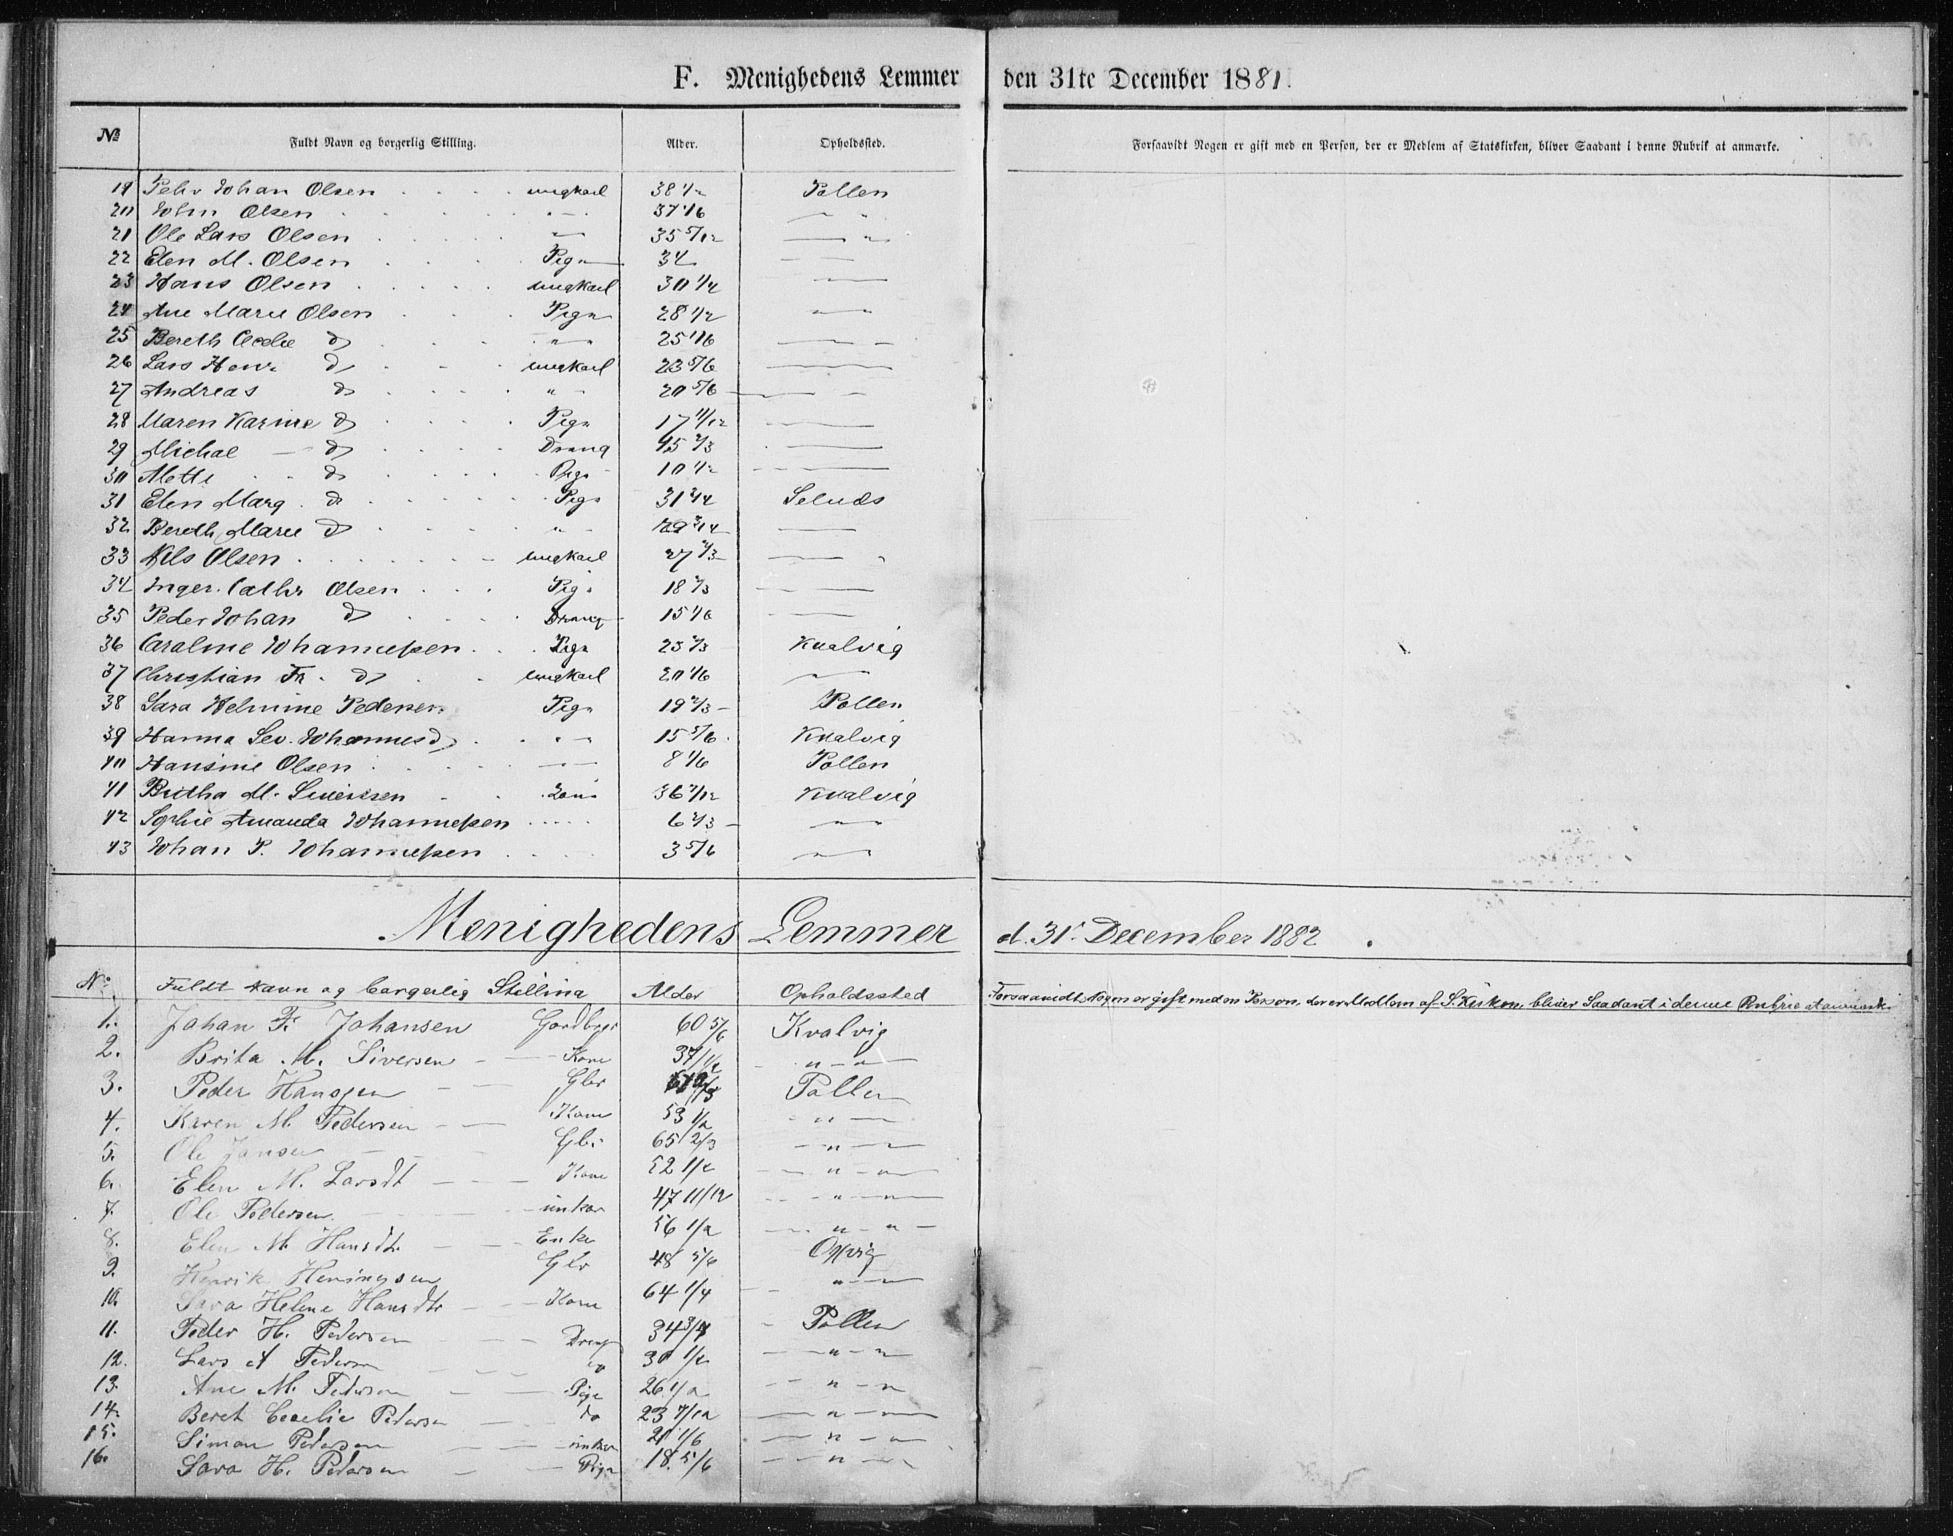 F. Menighedens Lemmer den 31te December 1881.
№ Fuldt Navn og borgerlig Stilling. Alder. Opholdssted. Forsaavidt Nogen er gift med en Person, der er Medlem af Statskirken, bliver Saadant i denne Rubrik at anmærke.
19 Johan Olsen ungkarl 38 1/2 Pollen
20 John Olsen " 37 1/6 " "
21 Ole Lars Olsen " 35 5/12 "
22 Elen M. Olsen Pige 34
23 Hans Olsen ungkarl 30 1/4
24 Ane Marie Olsen Pige 28 1/2 " "
25 Bereth Cecelie do " 25 1/6
26 Lars Henr. do ungkarl 23 5/6
27 Andreas do " 20 5/6
28 Maren Karine do Pige 17 11/12
29 Michal do Dreng 15 2/3
30 Mette do Pige 10 1/2
31 Elen Marg. do Pige 31 3/4
32 Bereth Marie do " 29 3/4
33 Nils Olsen ungkarl 27 2/3 "
34 Inger Cathr Olsen Pige 18 2/3
35 Peder Johan do Dreng 15 1/6
36 Caroline Johannessen Pige 25 2/3 Kvalvig
37 Christian Fr. do ungkarl 20 1/6 "
38 Sara Helmine Pedersen Pige 19 2/3 Pollen
39 Hanna Sev. Johannesd " 15 5/6 Kvalvig
40 Hansine Olsen 8 1/6 Pollen
41 Britha M. Siversen Kone 36 7/12 Kvalvig
42 Sophie Amanda Johannessen 6 2/3 "
43 Johan P. Johannessen 3 5/6 "
Menighedens Lemmer d. 31. December 1882.
No Fuldt Navn og borgerlig Stilling Alder Opholdssted Forsaavidt Nogen er gift med en Person, der er Medlem af S.Kirken, bliver Saadant i denne Rubrik at anmærk.
1. Johan Fr. Johansen Gardbgr 60 5/6 Kvalvig
2. Brita M. Siversen Kone 37 " "
3. Peder Hanssen Gbr Pollen
4. Karen M. Pedersen Kone 53 1/2 "
5. Ole Jansen Gbr 65 2/3 "
6. Elen M. Larsdt Kone 52 " "
7. Ole Pedersen unkar 47 11/12 " "
8. Elen M. Hansdtr Enke 56 1/2 " "
9. Henrik Heningsen Gbr 48 5/6
10. Sara Helene Hansdtr Kone 64 1/4 " "
11. Peder H. Pedersen Dreng 34 3/4 Pollen
12. Lars A Pedersen do " "
13. Ane M. Pedersen Pige 26 1/2 " "
14. Beret Cecelie Pedersen do 23 7/12 " "
15. Simon Pedersen unkar 21 1/6 " "
16. Sara H. Pedersen Pige 18 5/6 "